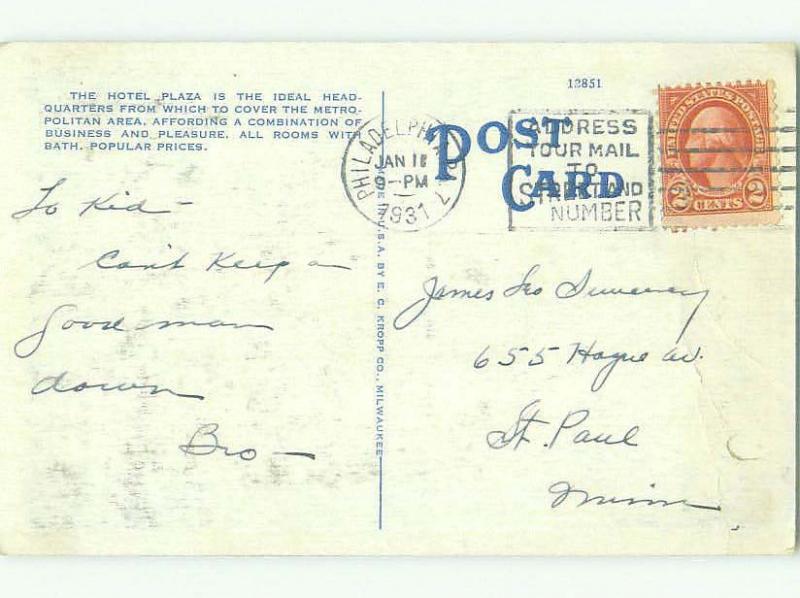 THE HOTEL PLAZA IS THE IDEAL HEAD-
QUARTERS FROM WHICH TO COVER THE METRO-
POLITAN AREA. AFFORDING A COMBINATION OF
BUSINESS AND PLEASURE. ALL ROOMS WITH
BATH. POPULAR PRICES.
To Kid -
Can't Keep a
good man
down
Bro -
MADE IN U.S.A. BY E. C. KROPP CO., MILWAUKEE
12851
POST
CARD
PHILADELPHIA, PA. 7
JAN 18
9-PM
1931
ADDRESS
YOUR MAIL
TO
STREET AND
NUMBER
UNITED STATES POSTAGE
2 CENTS 2
James Leo Sweeney
655 Hague av.
St. Paul
Minn